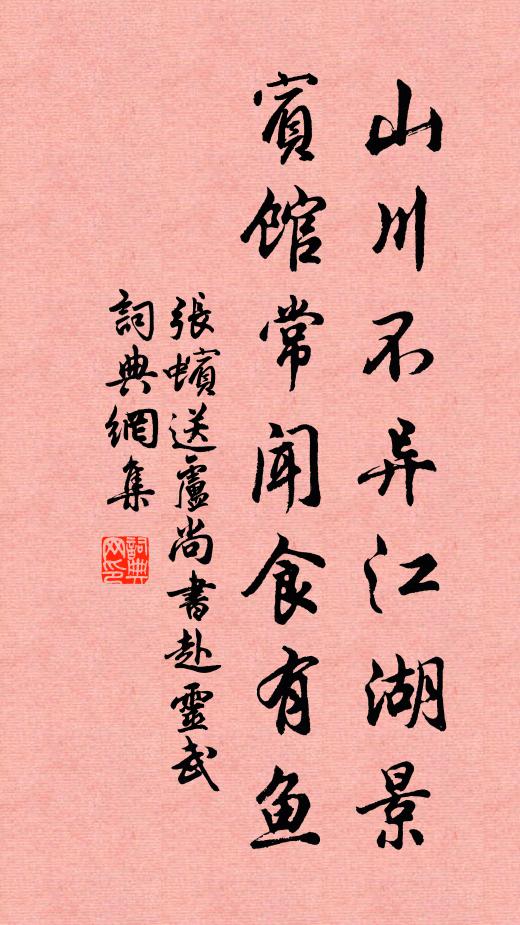 山川不异江湖景
賓館常聞食有鱼
張蠙送盧尚書赴靈武
詞典網集
詞典网印